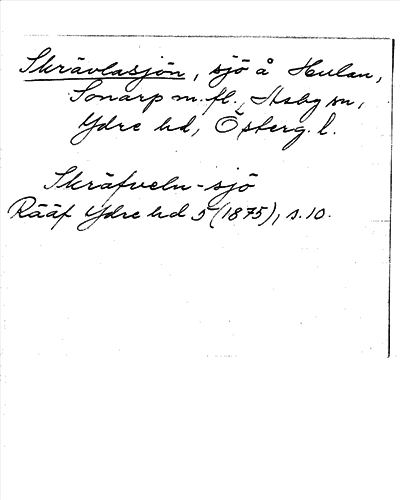 Skrävlasjön, sjö å Hulan,
Sonarp m. fl., Asby sn,
Ydre hd, Österg. l.
Skräfveln-sjö
Rääf Ydre hd 5 (1875), s. 10.